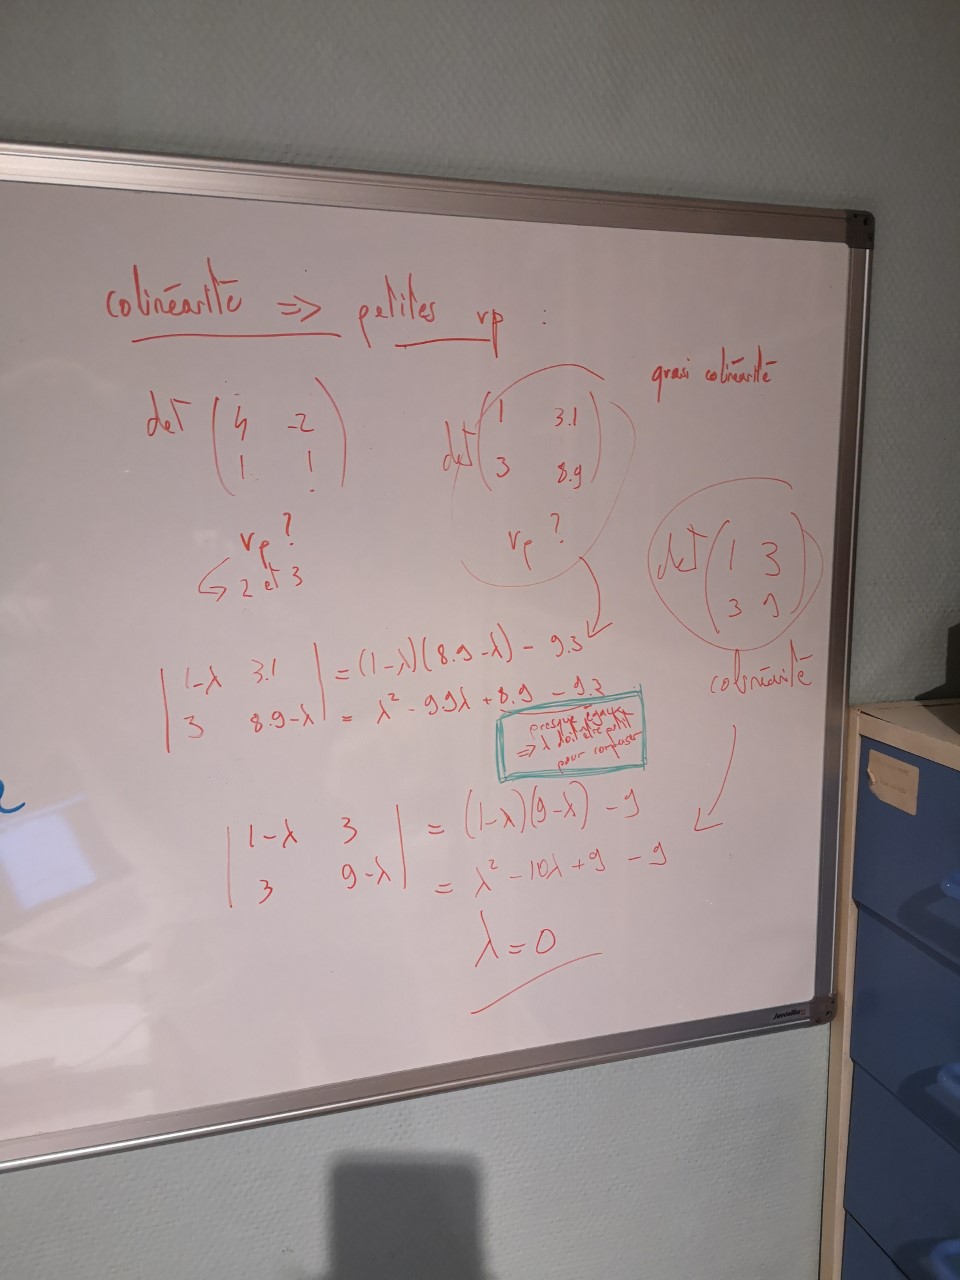 colinéarité => petites vp :
quasi colinéarité
det ( 4 -2
1 1 )
vp ?
↳ 2 et 3
det ( 1 3.1
3 8.9 )
vp ?
det ( 1 3
3 9 )
colinéarité
| 1-λ 3.1
3 8.9-λ |
= (1-λ)(8.9-λ) - 9.3
= λ² - 9.9λ + 8.9 - 9.3
presque égaux
=> λ doit être petit
pour compenser
| 1-λ 3
3 9-λ |
= (1-λ)(9-λ) - 9
= λ² - 10λ + 9 - 9
λ = 0